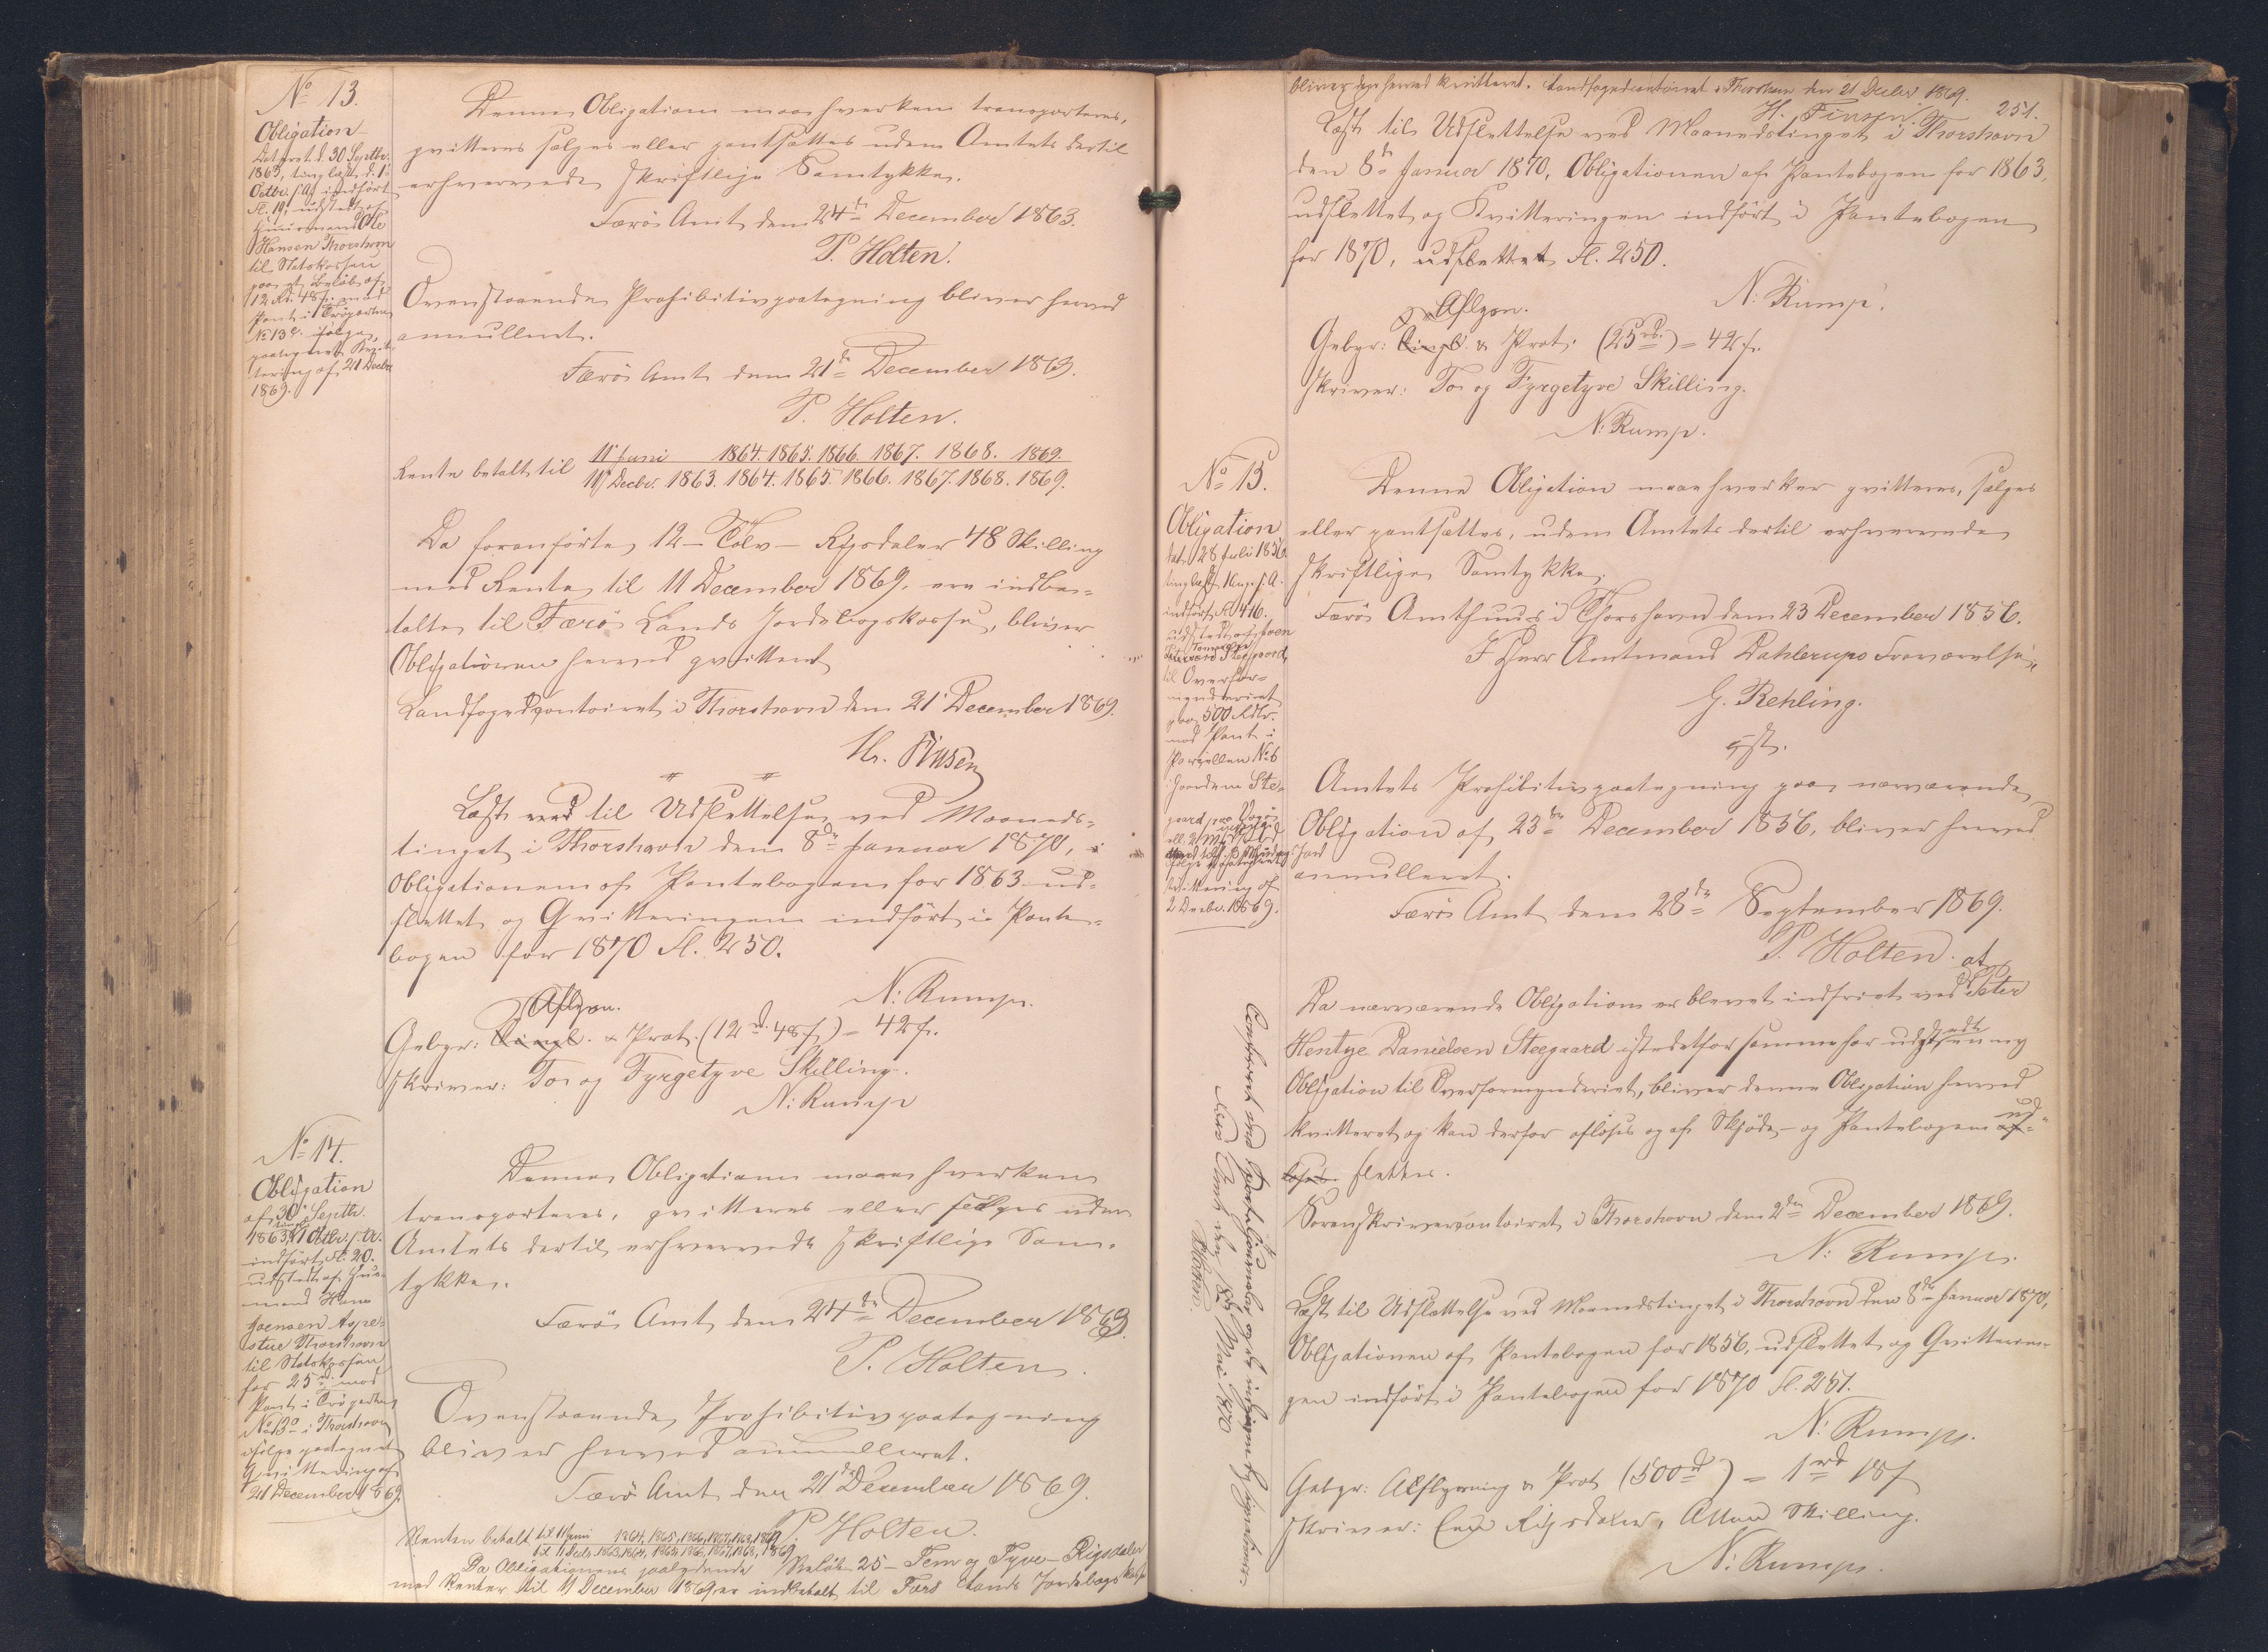 No 13.
Obligation
Dateret d. 30 Septbr.
1863, tinglæst d. 1
Octbr. s. A. indført
Fl. 19, udstedt af
Huusmand Ole
Hansen Thorshavn
til Statskassen
paa et Beløb af
12 Rd. 48 s. mod
Pant i Tröparten
No 13e. ifølge
paategnet Kvit-
tering af 21 Decbr
1869.
Denne Obligation maa hverken transporteres,
qvitteres sælges eller pantsættes uden Amtets dertil
erhvervede skriftlige Samtykke.
Færö Amt den 24de December 1863.
P. Holten.
Ovenstaaende Prohibitivpaategning bliver herved
annulleret.
Færö Amt den 21de December 1869.
P. Holten.
Rente betalt til 11 Juni 1864. 1865. 1866. 1867. 1868. 1869.
11 Decbr. 1863. 1864. 1865. 1866. 1867. 1868. 1869.
Da foranførte 12 – Tolv – Rigsdaler 48 Skilling
med Rente til 11 December 1869, ere indbe-
talte til Færö Lands Jordebogskasse, bliver
Obligationen herved qvitteret
Landfogedcontoiret i Thorshavn den 21 December 1869.
H. Finsen
Læst ved til Udslettelse ved Maaneds-
tinget i Thorshavn den 8de Januar 1870,
Obligationen af Pantebogen for 1863 ud-
slettet og Qvitteringen indført i Pante-
bogen for 1870 Fl. 250.
N: Rump.
Aflysn.
Gebyr: Tingl. & Prot. (12 rd. 48 s.) = 42 s.
skriver: To og Fyrgetyve Skilling.
N: Rump
No 14.
Obligation
af 30 Septbr.
1863, tingl. 1 Octbr. s. A.
indført Fl. 20.
udstedt af Huus-
mand Hans
Joensen
stue Thorshavn
til Statskassen
for 25 rd. mod
Pant i Tröparten
No 13a i Thorshavn
ifølge paategnet
Qvittering af
21 December 1869.
Denne Obligation maa hverken
transporteres, qvitteres eller sælges uden
Amtets dertil erhvervede skriftlige Sam-
tykke.
Færö Amt den 24de December 1863.
P. Holten.
Ovenstaaende Prohibitivpaategning
bliver herved annulleret.
Færö Amt den 21de December 1869.
P. Holten.
Renten betalt til 11 Juni 1864, 1865, 1866, 1867, 1868, 1869
til 11 Decbr. 1863, 1864, 1865, 1866, 1867, 1868, 1869
Da Obligationens paalydende Beløb 25 – Fem og Tyve – Rigsdaler
med Renter til 11 December 1869 er indbetalt til Færö Lands Jordebogskasse
bliver den herved kvitteret. Landfogedcontoiret i Thorshavn den 21 Decbr 1869.
H. Finsen.
251.
Læst til Udslettelse ved Maanedstinget i Thorshavn
den 8de Januar 1870, Obligationen af Pantebogen for 1863,
udslettet og Kvitteringen indført i Pantebogen
for 1870, udslettet Fl. 250.
N: Rump.
Aflysn.
Gebyr: Tingl. & Prot. (25 rd.) = 42 s.
skriver: To og Fyrgetyve Skilling.
N: Rump.
No 15.
Obligation
dat. 28 Juli 1856
tinglæst 1 Aug. s. A.
indført Fl. 416.
udstedt af Joen
Steegaard
til Overfor-
mynderiet
paa 500 Rdlr.
mod Pant i
Parcellen No 6
Jorden Ste-
gaard paa
ifølge paategnet
Kvittering af
2 Decbr. 1869.
Denne Obligation maa hverken qvitteres, sælges
eller pantsættes, uden Amtets dertil erhvervede
skriftlige Samtykke.
Færö Amthuus i Thorshavn den 23 December 1856.
I Herr Amtmand Dahlerups Fraværelse
G. Rehling.
cst.
Amtets Prohibitivpaategning paa nærværende
Obligation af 23de December 1856, bliver herved
annulleret.
Færö Amt den 28de September 1869.
P. Holten.
Da nærværende Obligation er blevet indfriet ved at Peter
Hentze Danielsen Steegaard istedetfor samme har udstedt en ny
Obligation til Overformynderiet, bliver denne Obligation herved
kvitteret og kan derfor aflöses og af Skjøde- og Pantebogen ud-
slettes.
Sorenskrivercontoiret i Thorshavn den 2den December 1869.
N: Rump.
Læst til Udslettelse ved Maanedstinget i Thorshavn den 8de Januar 1870,
Obligationen af Pantebogen for 1856, udslettet og Qvitterin-
gen indført i Pantebogen for 1870 Fl. 251.
N: Rump.
Gebyr: Aflysning & Prot (500 rd) = 1 rd 18 s
skriver: Een Rigsdaler, Atten Skilling.
N: Rump.
Confereret med Sportuljournalen og de
Færö Amt den 18 Mai 1870
Holten.